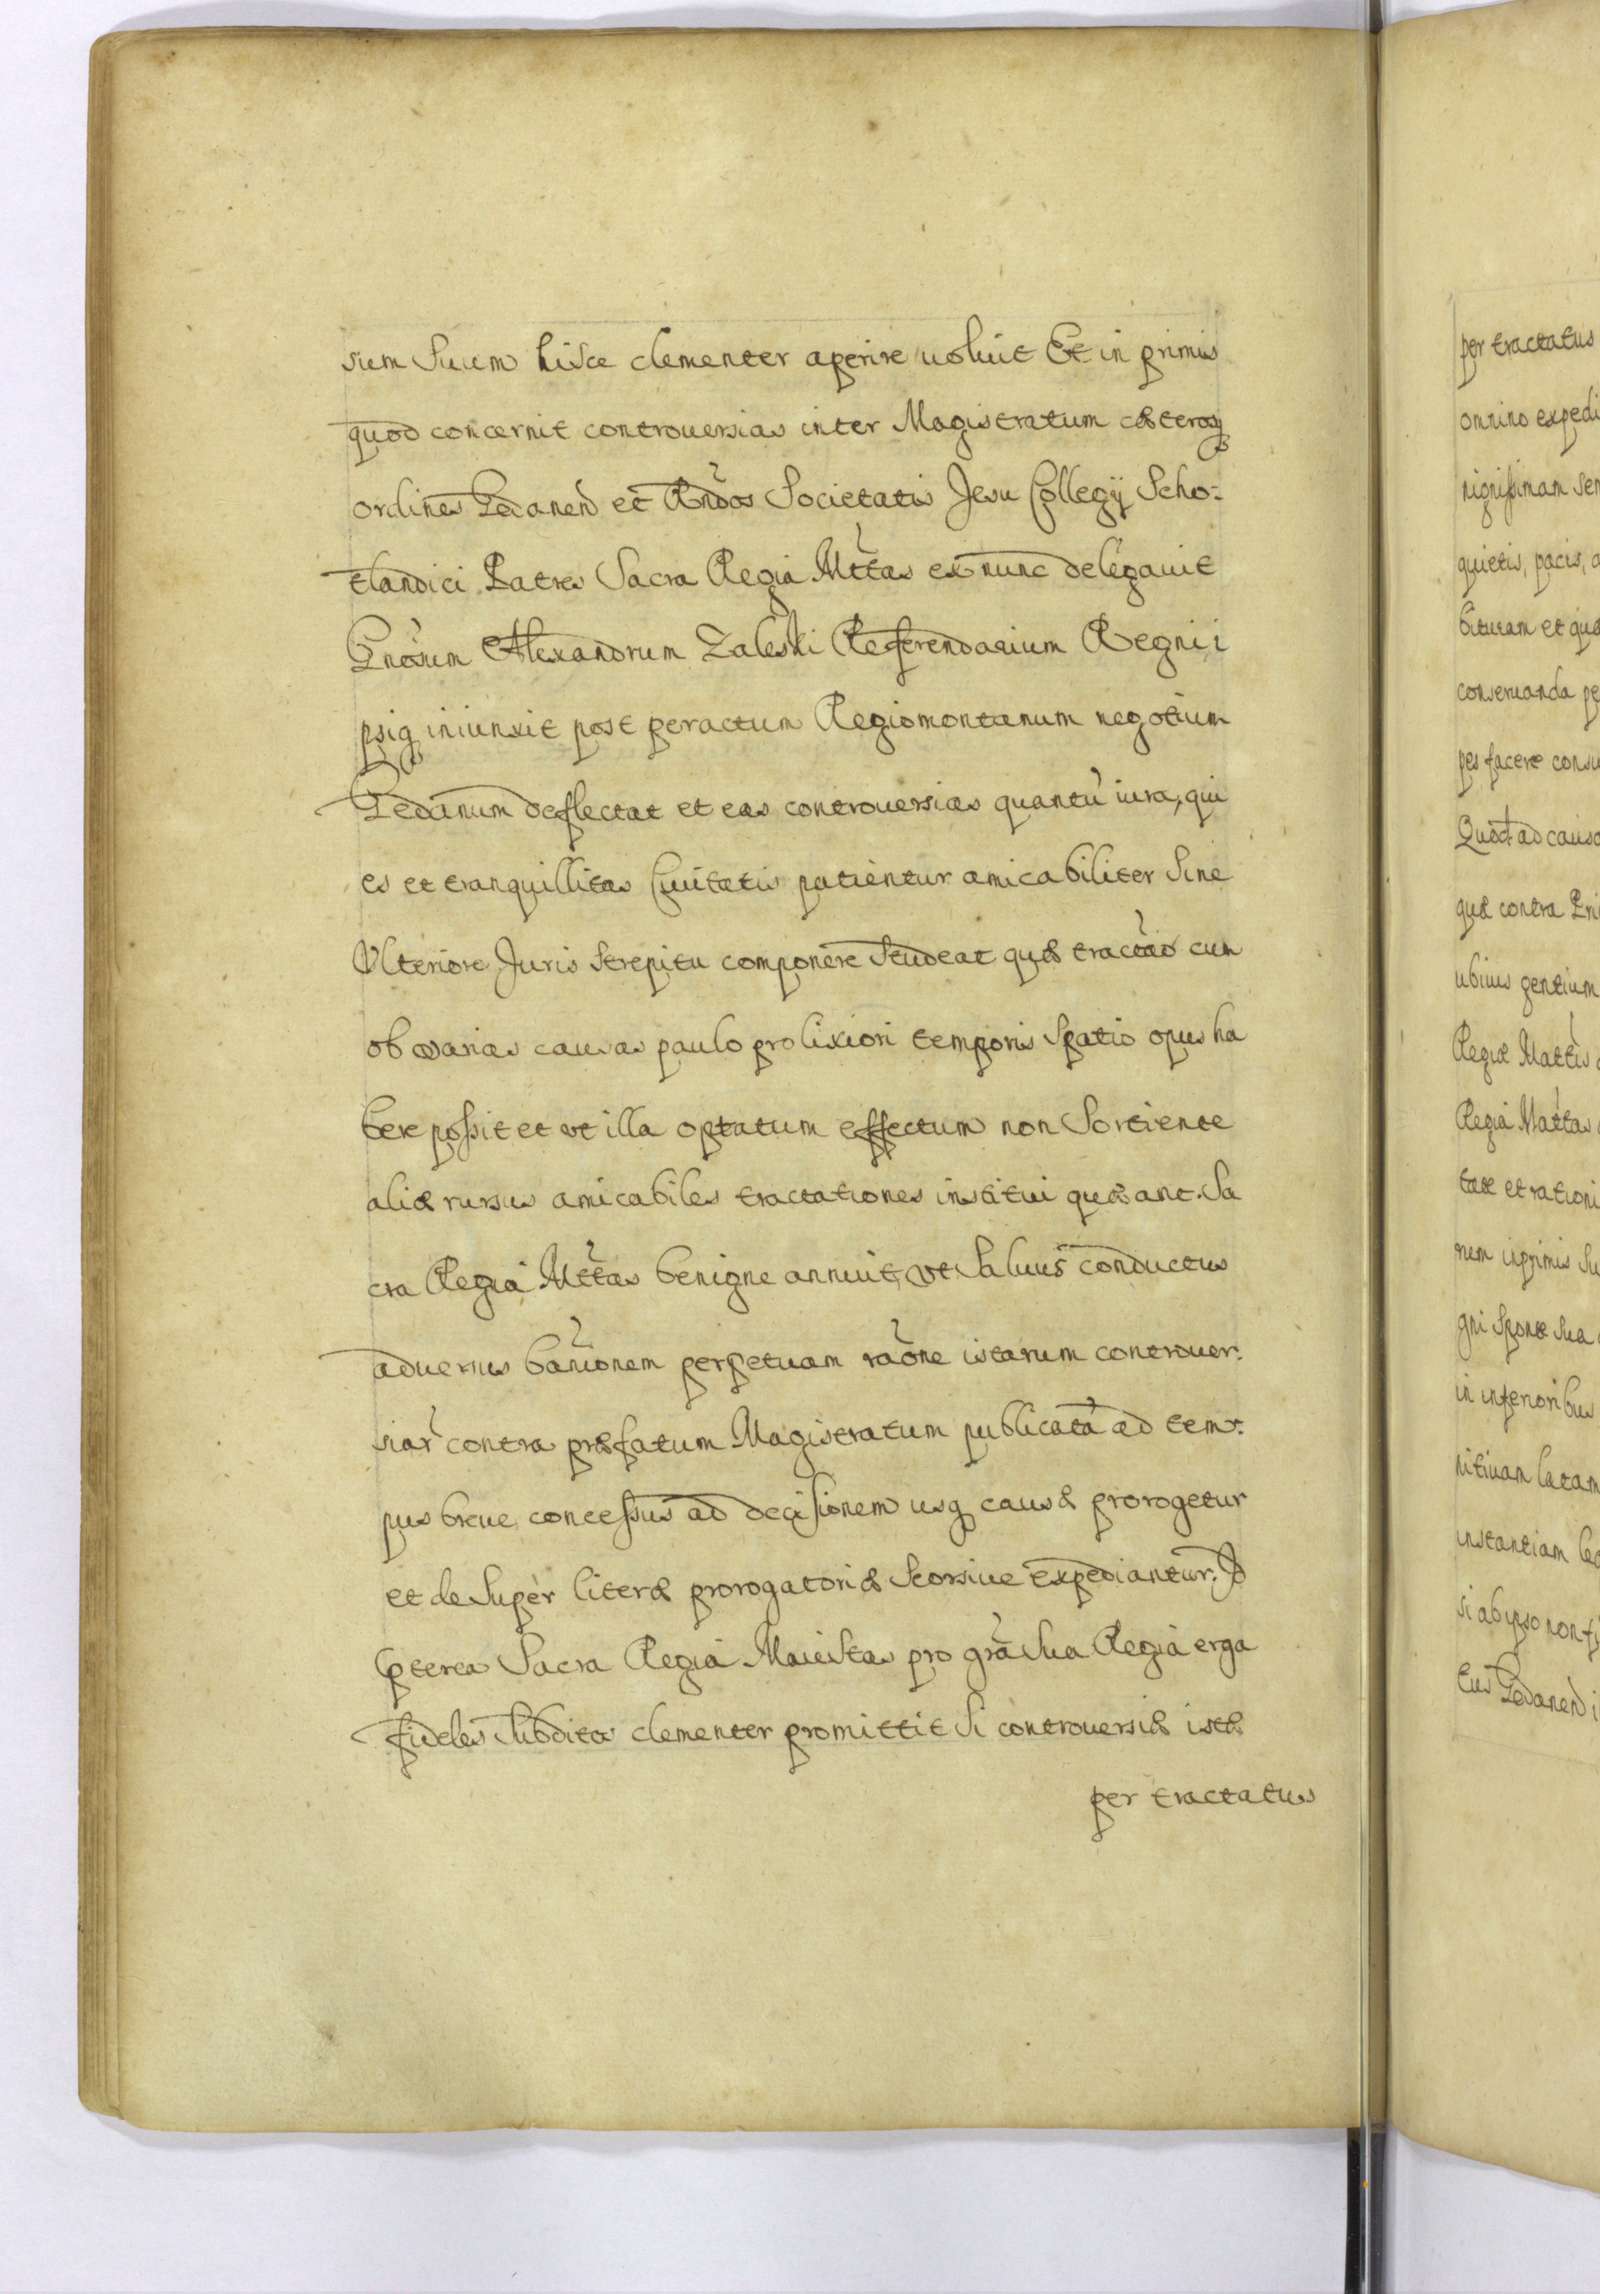 sum Suum hisce clementer aperire uoluit Et in primis
quod concernit controuersias inter Magistratum cæterosq
ordines Gedanen et Rndos Societatis Jesu Collegij Scho-
tlandici Patres Sacra Regia Mttas ex nunc delegauit
Gnosum Alexandrum Zaleski Referendarium Regni i
psiq iniunxit post peractum Regiomontanum negotium
Gedanum deflectat et eas controuersias quantu iura, qui
es et tranquillitas Ciuitatis patientur amicabiliter Sine
Vlteriore Juris Strepitu componere Studeat quæ tractao cum
ob varias causas paulo prolixiori temporis Spatio opus ha
bere possit et vt illa optatum effectum non Sortiente
aliæ rursus amicabiles tractationes institui queant. Sa
cra Regia Mttas benigne annuit, vt Saluus conductus
aduersus banionem perpetuam raone istarum controuer-
siar contra præfatum Magistratum publicata ad tem-
pus breue concessus ad decisionem usq causæ prorogetur
et deSuper literæ prorogatoriæ Seorsiue expediantur.
pterea Sacra Regia Maiestas pro gra Sua Regia erga
fideles Subditos clementer promittit Si controuersiæ istæ
per tractatus
per tractatus
omnino expedi
nignissimam sen
quietis, pacis, a
bituram et qua
conseruanda pe
pes facere consu
Quod ad causa
quæ contra Pri
ubiuis gentium
Regiæ Mattis
Regia Mattas
tate et rationi
rem inprimis Su
gni Sponte Sua
in inferioribus
nitiuam latam
instantiam
si ab ipso non
Gedanen i